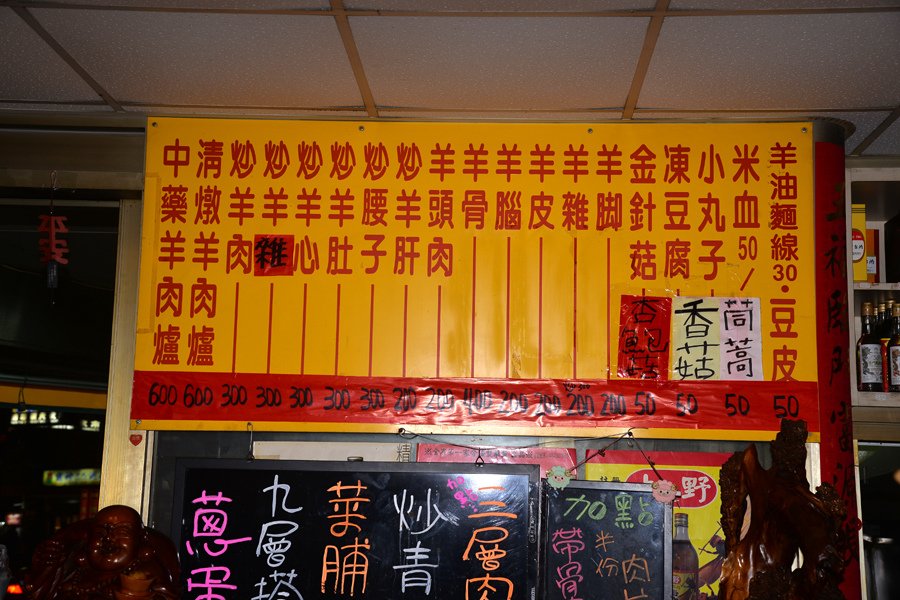 中藥羊肉爐
清燉羊肉爐
炒羊肉
炒羊雜
炒羊心
炒羊肚
炒腰子
炒羊肝
羊頭肉
羊骨
羊腦
羊皮
羊雜
羊脚
金針菇
凍豆腐
小丸子
米血50/
羊油麵線30・豆皮
杏鮑菇
香菇
茼蒿
600 600 300 300 300 300 300 200 200 400 200 200 200 200 50 50 50 50
平安
九層塔
菜脯
炒青
三層肉
加點
帶骨
半份
肉
野
精